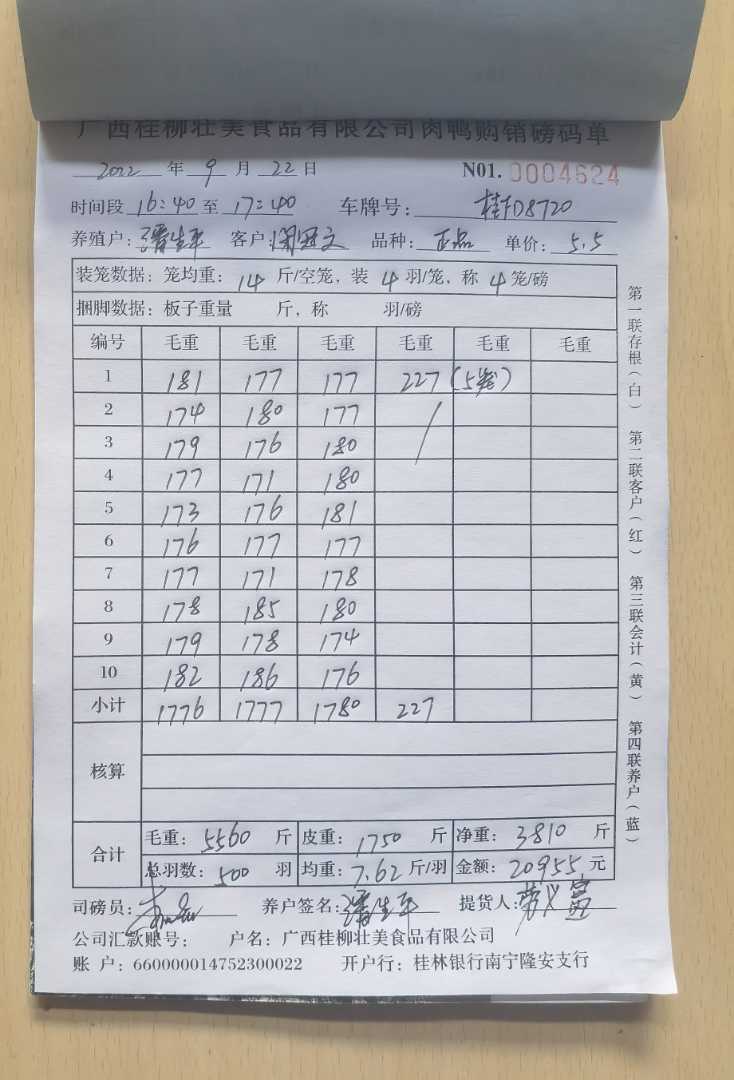 广西桂柳壮美食品有限公司肉鸭购销磅码单
2022 年 9 月 22 日 N01. 0004624
时间段 16:40 至 17:40 车牌号: 桂FD8720
养殖户: 潘生平 客户: 品种: 正品 单价: 5.5
装笼数据: 笼均重: 14 斤/空笼, 装 4 羽/笼, 称 4 笼/磅
捆脚数据: 板子重量 斤, 称 羽/磅
编号 毛重 毛重 毛重 毛重 毛重 毛重
1 181 177 177 227 (5笼)
2 174 180 177
3 179 176 180
4 177 171 180
5 173 176 181
6 176 177 177
7 177 171 178
8 178 185 180
9 179 178 174
10 182 186 176
小计 1776 1777 1780 227
核算
合计 毛重: 5560 斤 皮重: 1750 斤 净重: 3810 斤
总羽数: 500 羽 均重: 7.62 斤/羽 金额: 20955 元
司磅员: 养户签名: 潘生平 提货人:
公司汇款账号: 户名: 广西桂柳壮美食品有限公司
账 户: 660000014752300022 开户行: 桂林银行南宁隆安支行
第一联存根(白) 第二联客户(红) 第三联会计(黄) 第四联养户(蓝)